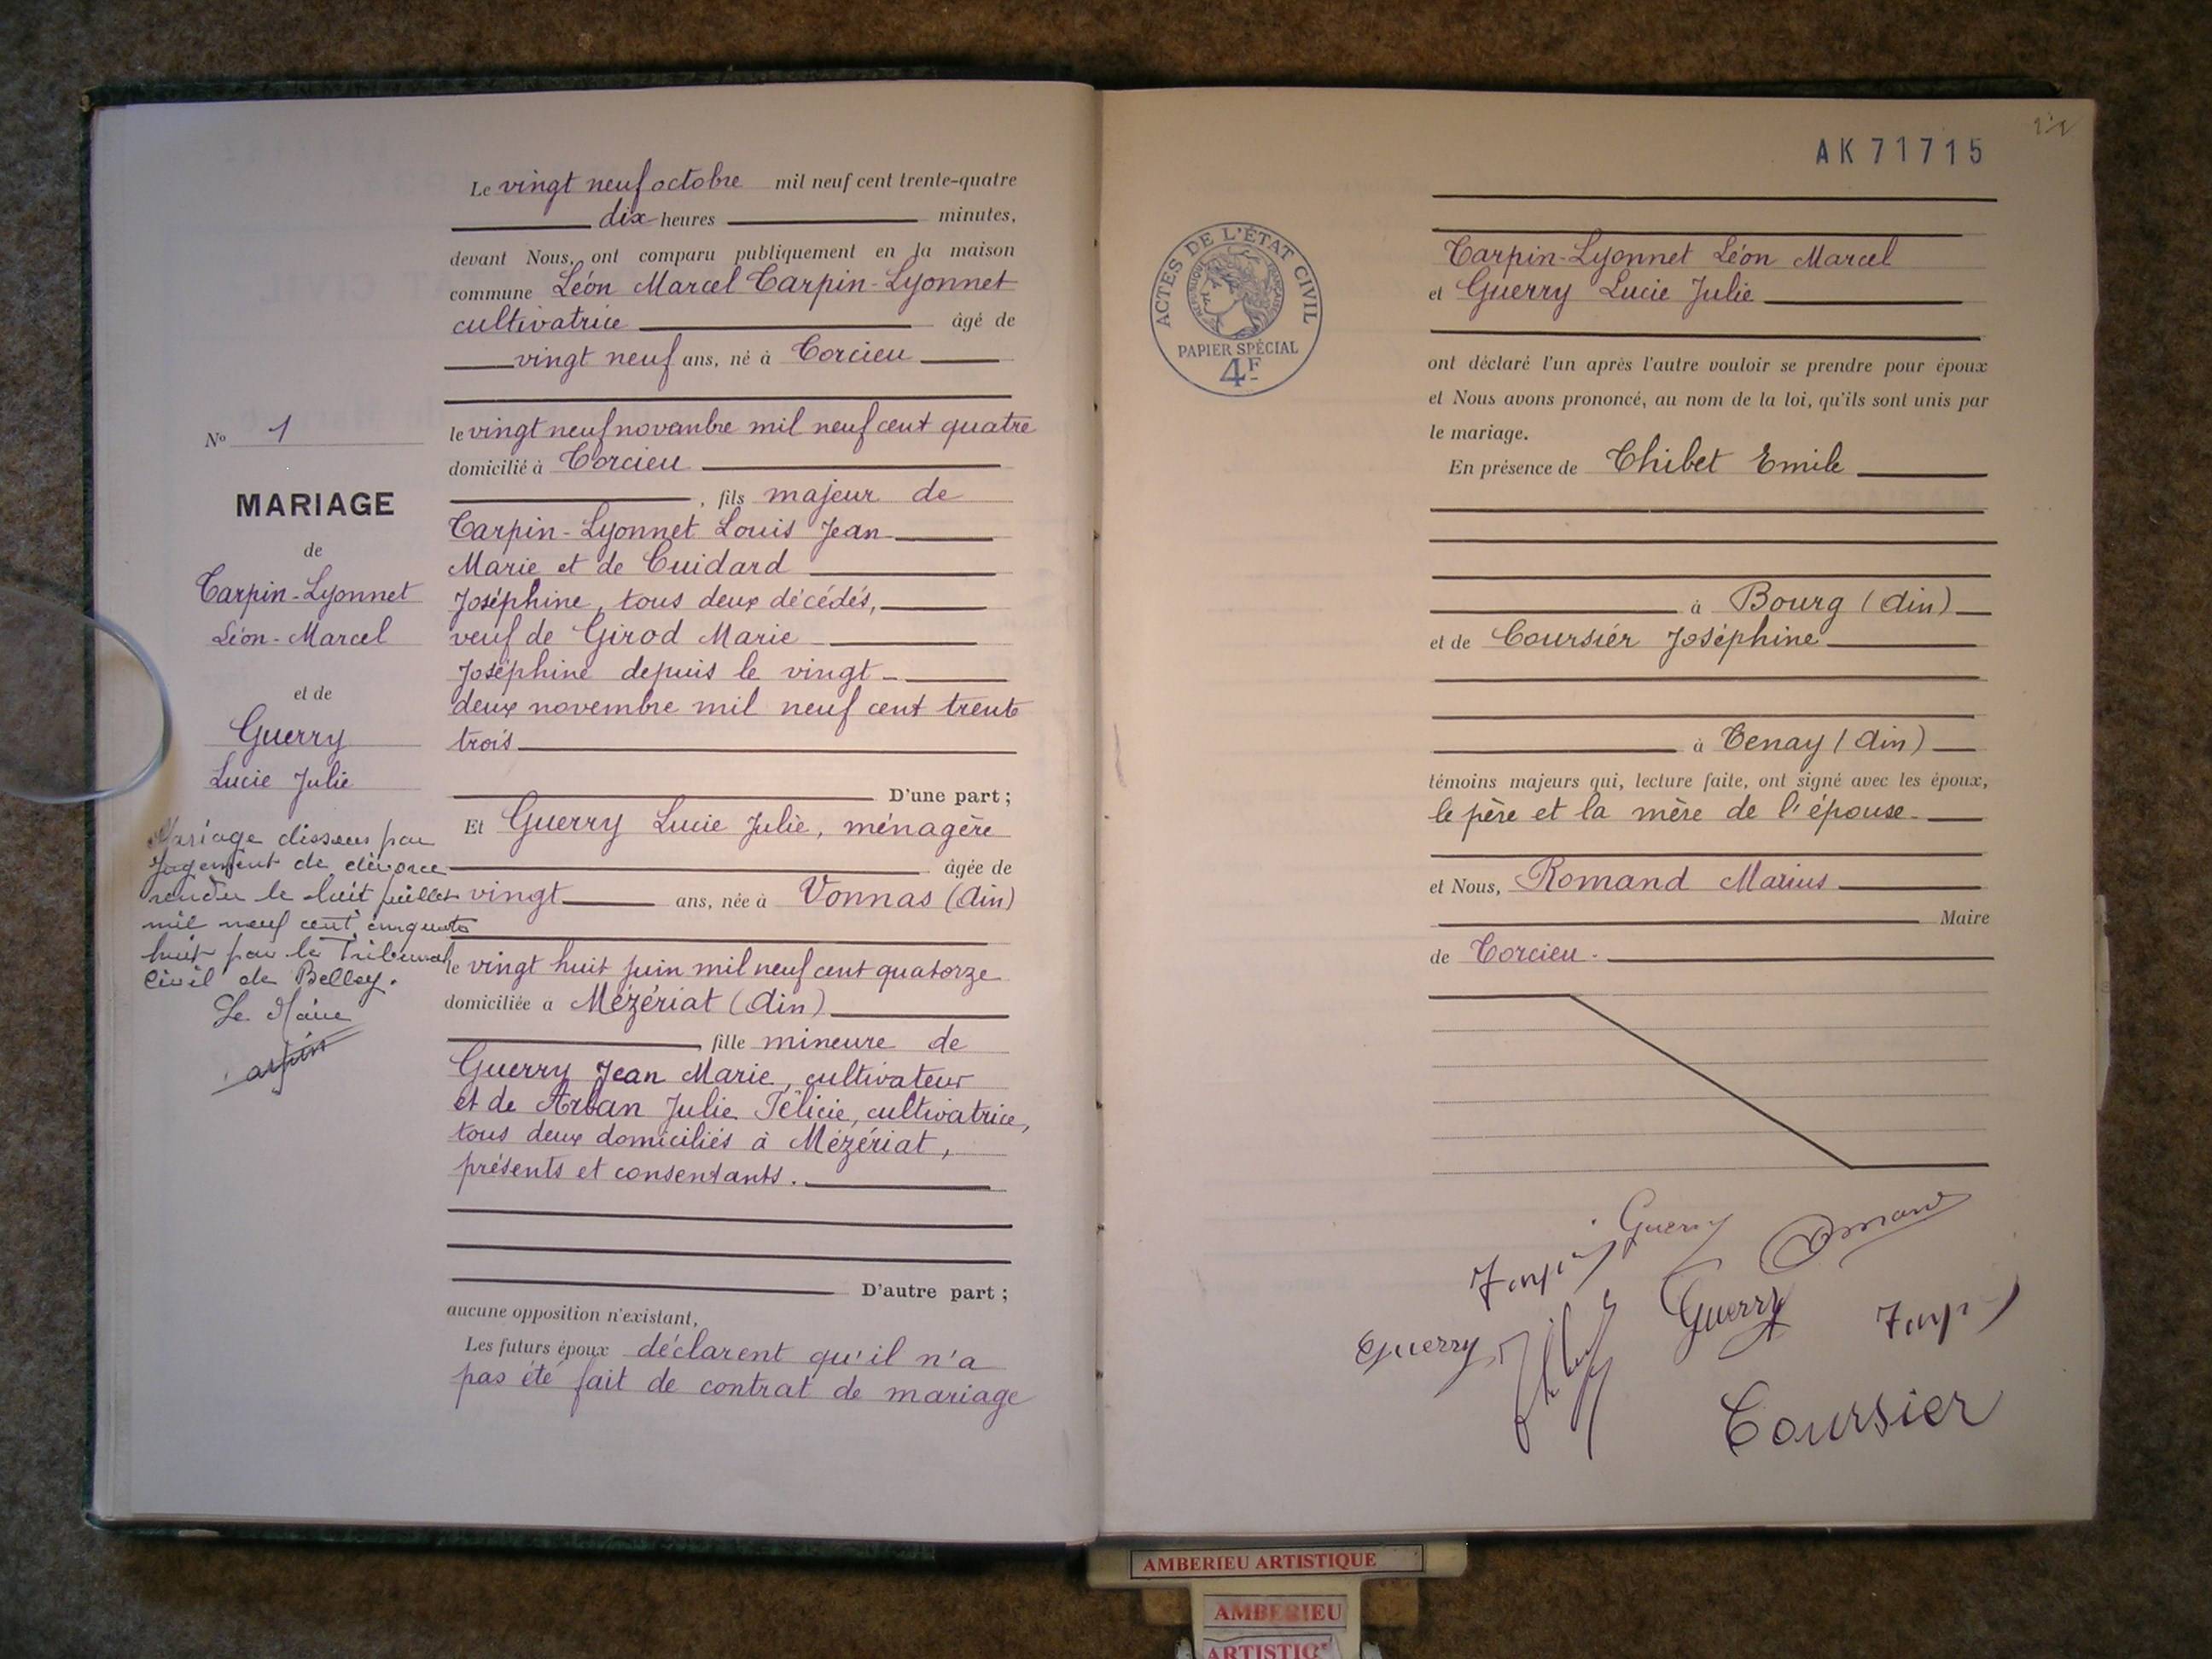 AK 71715
Le vingt neuf octobre mil neuf cent trente-quatre
dix heures minutes,
devant Nous, ont comparu publiquement en la maison
commune Léon Marcel Tarpin-Lyonnet
cultivatrice âgé de
vingt neuf ans, né à Torcieu
le vingt neuf novembre mil neuf cent quatre
domicilié à Torcieu
, fils majeur de
Tarpin-Lyonnet Louis Jean
Marie et de Cuidard
Joséphine, tous deux décédés,
veuf de Girod Marie
Joséphine depuis le vingt-
deux novembre mil neuf cent trente
trois
D'une part ;
Et Guerry Lucie Julie, ménagère
âgée de
vingt ans, née à Vonnas (Ain)
le vingt huit juin mil neuf cent quatorze
domiciliée a Mézériat (Ain)
fille mineure de
Guerry Jean Marie, cultivateur
et de Arban Julie Félicie, cultivatrice,
tous deux domiciliés à Mézériat,
présents et consentants.
D'autre part ;
aucune opposition n'existant,
Les futurs époux déclarent qu'il n'a
pas été fait de contrat de mariage
No 1
MARIAGE
de
Tarpin-Lyonnet
Léon-Marcel
et de
Guerry
Lucie Julie
Mariage dissous par
Jugement de divorce
rendu le huit juillet
mil neuf cent cinquante
huit par le Tribunal
Civil de Belley.
Le Maire
ACTES DE L'ÉTAT CIVIL
RÉPUBLIQUE FRANÇAISE
PAPIER SPÉCIAL
4F
Tarpin-Lyonnet Léon Marcel
et Guerry Lucie Julie
ont déclaré l'un après l'autre vouloir se prendre pour époux
et Nous avons prononcé, au nom de la loi, qu'ils sont unis par
le mariage.
En présence de Thibet Emile
à Bourg (Ain)
et de Coursier Joséphine
à Tenay (Ain)
témoins majeurs qui, lecture faite, ont signé avec les époux,
le père et la mère de l'épouse
et Nous, Romand Marius
Maire
de Torcieu.
Guerry
Guerry
Guerry
Coursier
AMBERIEU ARTISTIQUE
AMBERIEU
ARTISTIQ